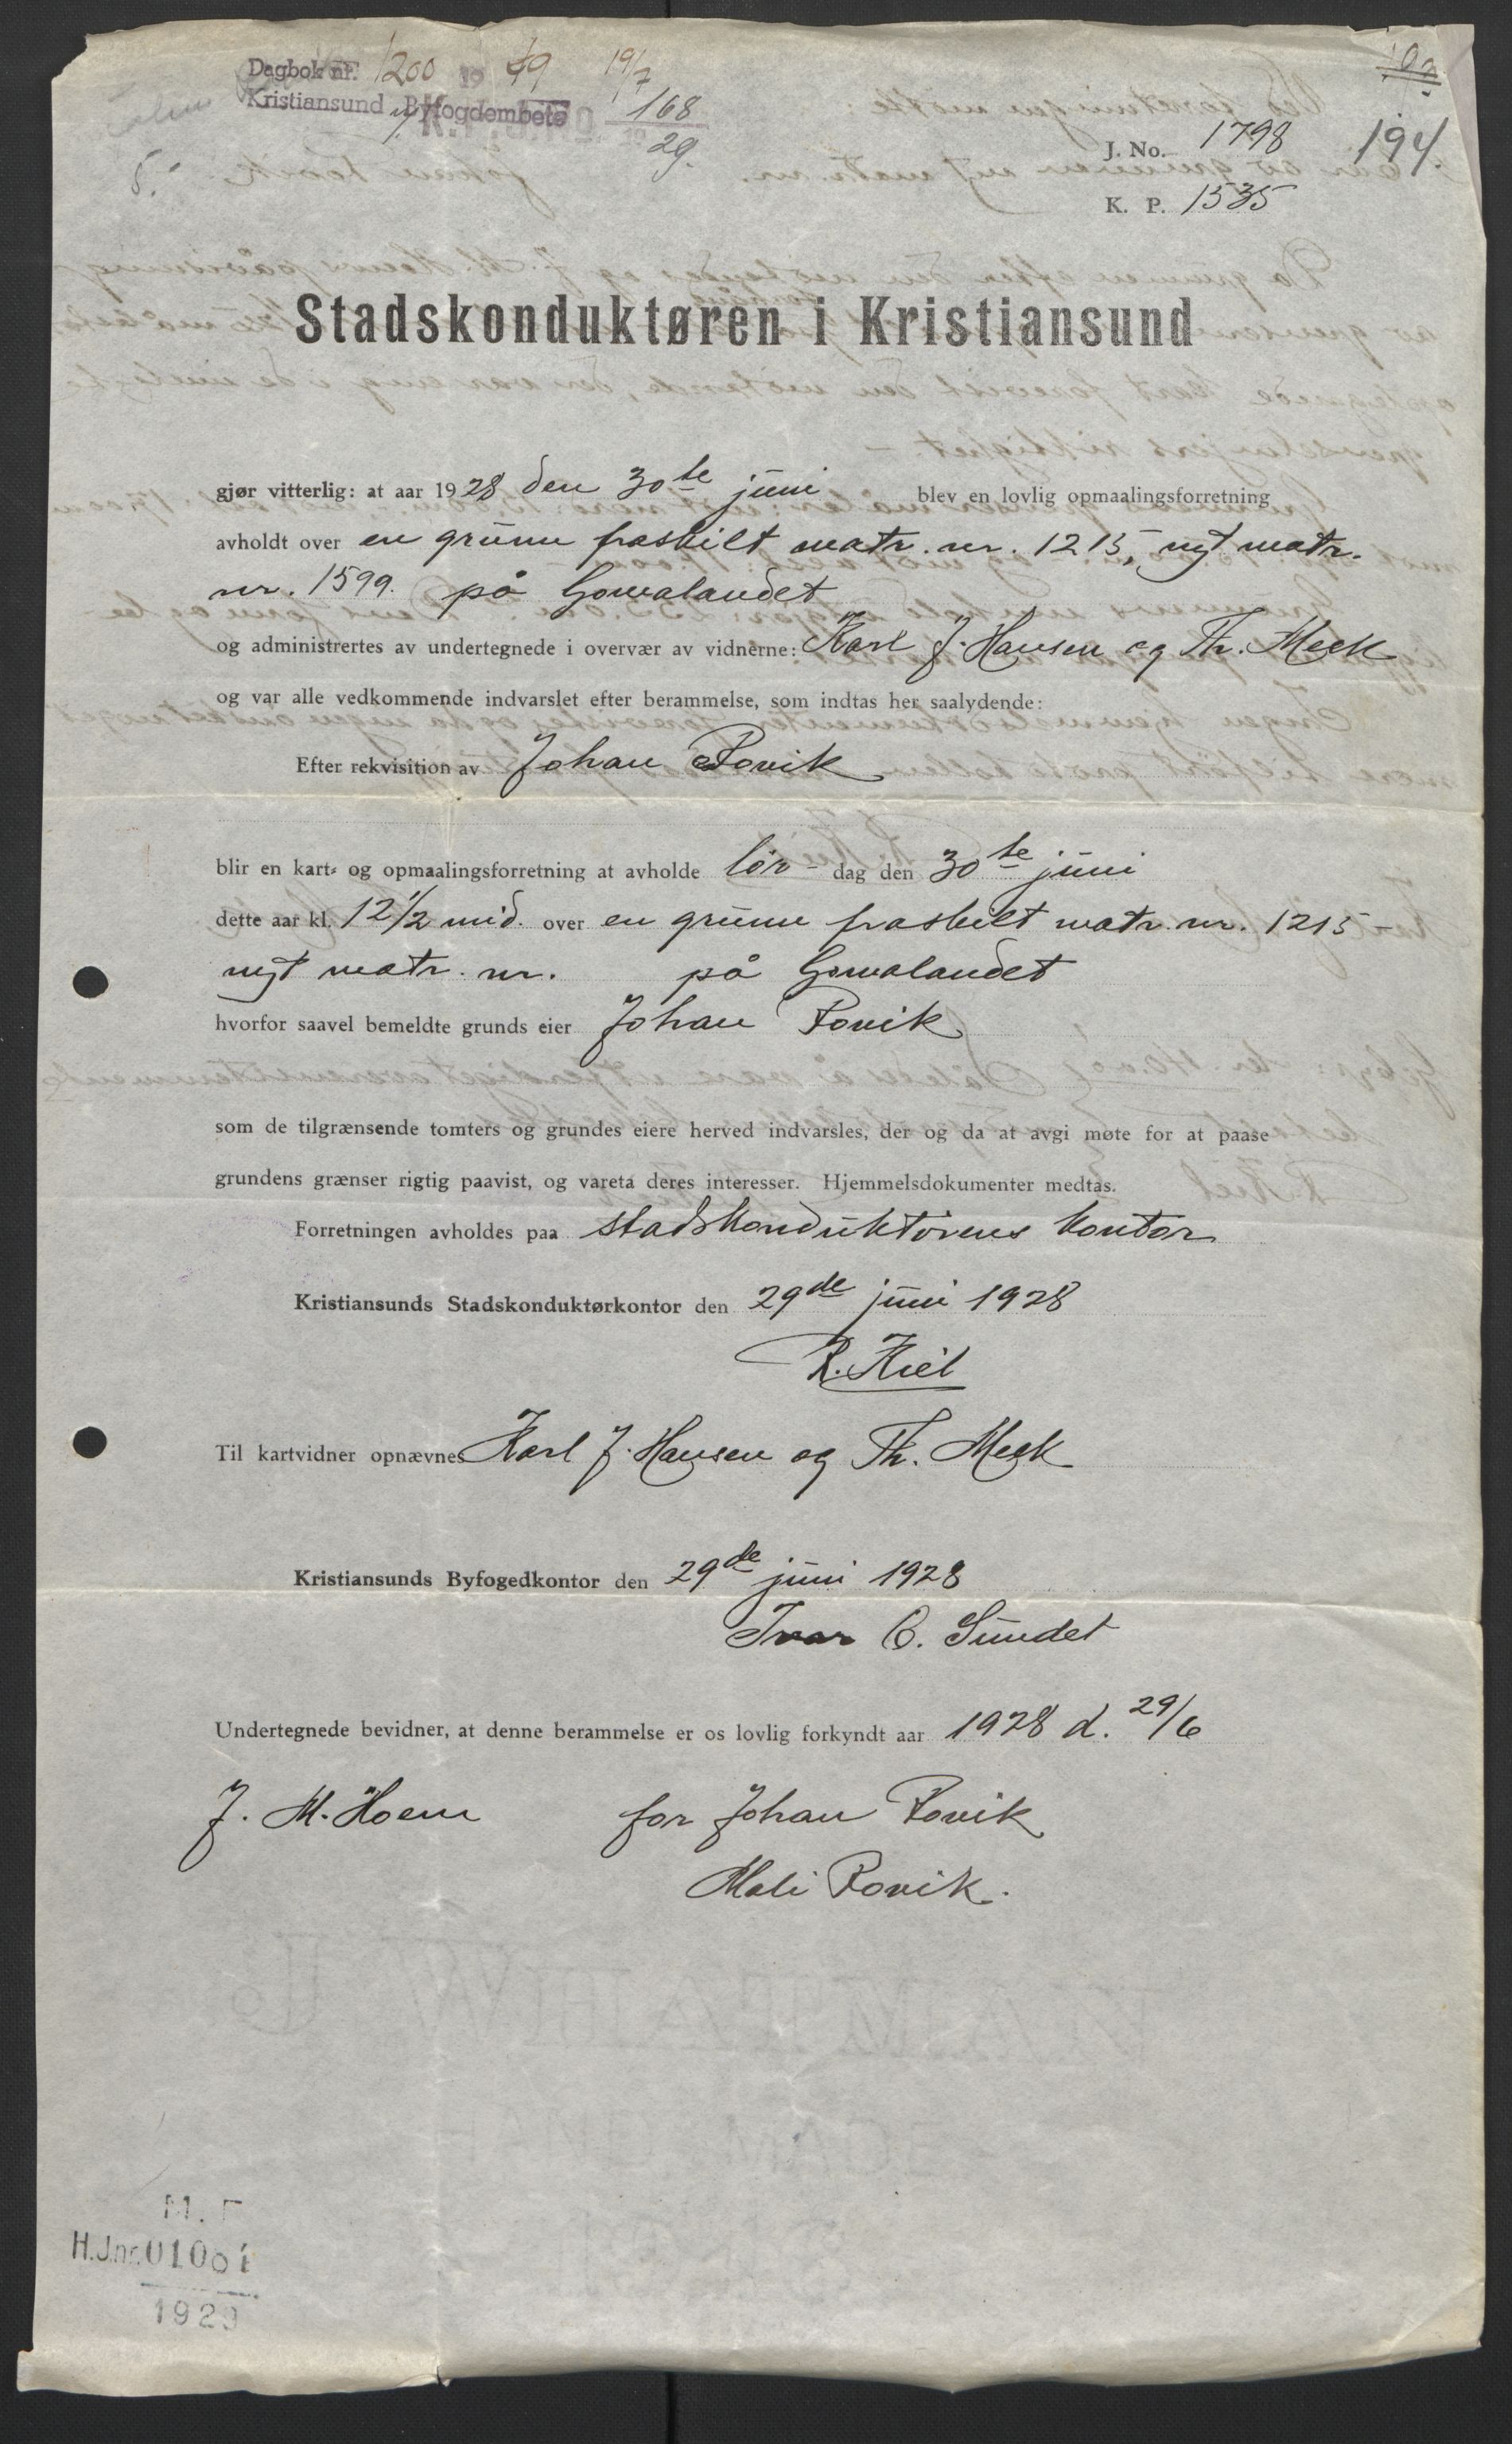 Dagbok nr. 1200 19 29 19/7
Kristiansund Byfogdembete
168
29.
5.-
J. No. 1798
194.
K. P. 1535
Stadskonduktøren i Kristiansund
gjør vitterlig: at aar 1928 den 30te juni blev en lovlig opmaalingsforretning
avholdt over en grunn fraskilt matr. nr. 1215, nyt matr.
nr. 1599. på Gomalandet
og administrertes av undertegnede i overvær av vidnerne: Karl J. Hansen og Th. Meek
og var alle vedkommende indvarslet efter berammelse, som indtas her saalydende:
Efter rekvisition av Johan Rovik
blir en kart- og opmaalingsforretning at avholde lør- dag den 30te juni
dette aar kl. 12 1/2 mid. over en grunn fraskilt matr. nr. 1215-
nyt matr. nr. på Gomalandet
hvorfor saavel bemeldte grunds eier Johan Rovik
som de tilgrænsende tomters og grundes eiere herved indvarsles, der og da at avgi møte for at paase
grundens grænser rigtig paavist, og vareta deres interesser. Hjemmelsdokumenter medtas.
Forretningen avholdes paa stadskonduktørens kontor
Kristiansunds Stadskonduktørkontor den 29de juni 1928
R. Kiel
Til kartvidner opnævnes Karl J. Hansen og Th. Meek
Kristiansunds Byfogedkontor den 29de juni 1928
Ivar O. Sundet
Undertegnede bevidner, at denne berammelse er os lovlig forkyndt aar 1928 d. 29/6
J. M. Hoem for Johan Rovik
Mali Rovik.
H.J.nr. 01001
1929